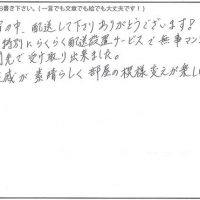 お書き下さい。(一言でも文章でも絵でも大丈夫です!)
の中、配送して下さりありがとうございます!
特別にらくらく配送設置サービスで無事マン
先で受け取り出来ました。
感が素晴らしく部屋の模様変えが楽し